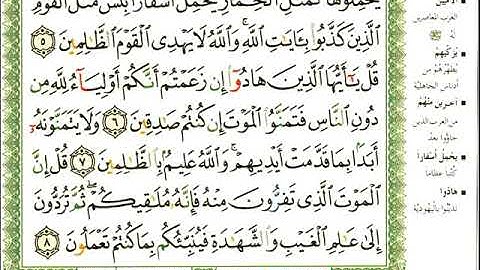 يَحْمِلُوهَا كَمَثَلِ الْحِمَارِ يَحْمِلُ أَسْفَارًا بِئْسَ مَثَلُ الْقَوْمِ
الَّذِينَ كَذَّبُوا بِـَٔايَاتِ اللَّهِ وَاللَّهُ لَا يَهْدِى الْقَوْمَ الظَّالِمِينَ ٥
قُلْ يَـٰٓأَيُّهَا الَّذِينَ هَادُوٓا إِن زَعَمْتُمْ أَنَّكُمْ أَوْلِيَآءُ لِلَّهِ مِن
دُونِ النَّاسِ فَتَمَنَّوُا الْمَوْتَ إِن كُنتُمْ صَـٰدِقِينَ ٦ وَلَا يَتَمَنَّوْنَهُۥٓ
أَبَدًۢا بِمَا قَدَّمَتْ أَيْدِيهِمْ وَاللَّهُ عَلِيمٌۢ بِالظَّـٰلِمِينَ ٧ قُلْ إِنَّ
الْمَوْتَ الَّذِى تَفِرُّونَ مِنْهُ فَإِنَّهُۥ مُلَـٰقِيكُمْ ثُمَّ تُرَدُّونَ
إِلَىٰ عَـٰلِمِ الْغَيْبِ وَالشَّهَـٰدَةِ فَيُنَبِّئُكُم بِمَا كُنتُمْ تَعْمَلُونَ ٨
العرب المعاصرين
له ﷺ
يُزَكِّيهِمْ
يُطَهِّرُهُمْ من
أدناس الجاهلية
آخَرِينَ مِنْهُمْ
من العرب الذين
جاؤوا بعدُ
يَحْمِلُ أَسْفَارًا
كُتُبًا عظامًا
هَادُوا
تديَّنوا باليهودية